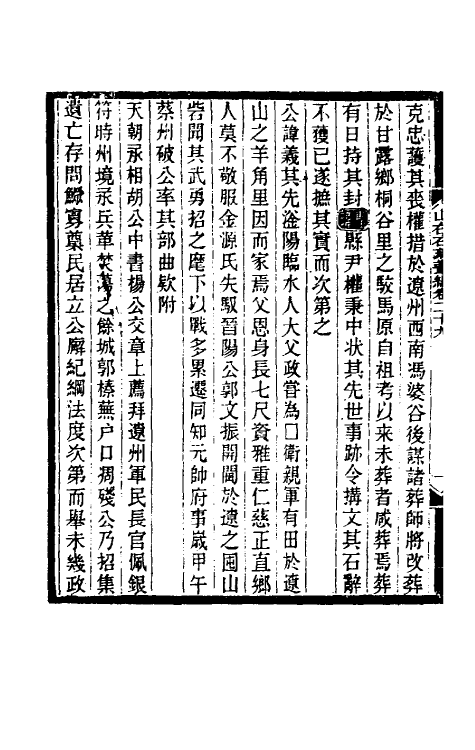 克忠護其喪權措於遼州西南馮婆谷後謀諸葬師將改葬
於甘露鄉桐谷里之駮馬原自祖考以來未葬者咸葬焉葬
有日持其封縣尹權秉中状其先世事跡令撰文其石辭
不獲已遂摭其實而次第之
公諱義其先滏陽臨水人大父政嘗為□衛親軍有田於遼
山之羊角里因而家焉父恩身長七尺資雅重仁慈正直鄉
人莫不敬服金源氏失馭晉陽公郭文振開閫於遼之圍山
砦聞其武勇招之麾下以戰多累遷同知元帥府事嵗甲午
蔡州破公率其部曲欵附
天朝承相胡公中書楊公交章上薦拜遼州軍民長官佩銀
符時州境承兵革焚蕩之餘城郭榛蕪户口凋殘公乃招集
遺亡存問鰥寡奠民居立公廨紀綱法度次第而舉未幾政
山右石刻叢編卷二十九